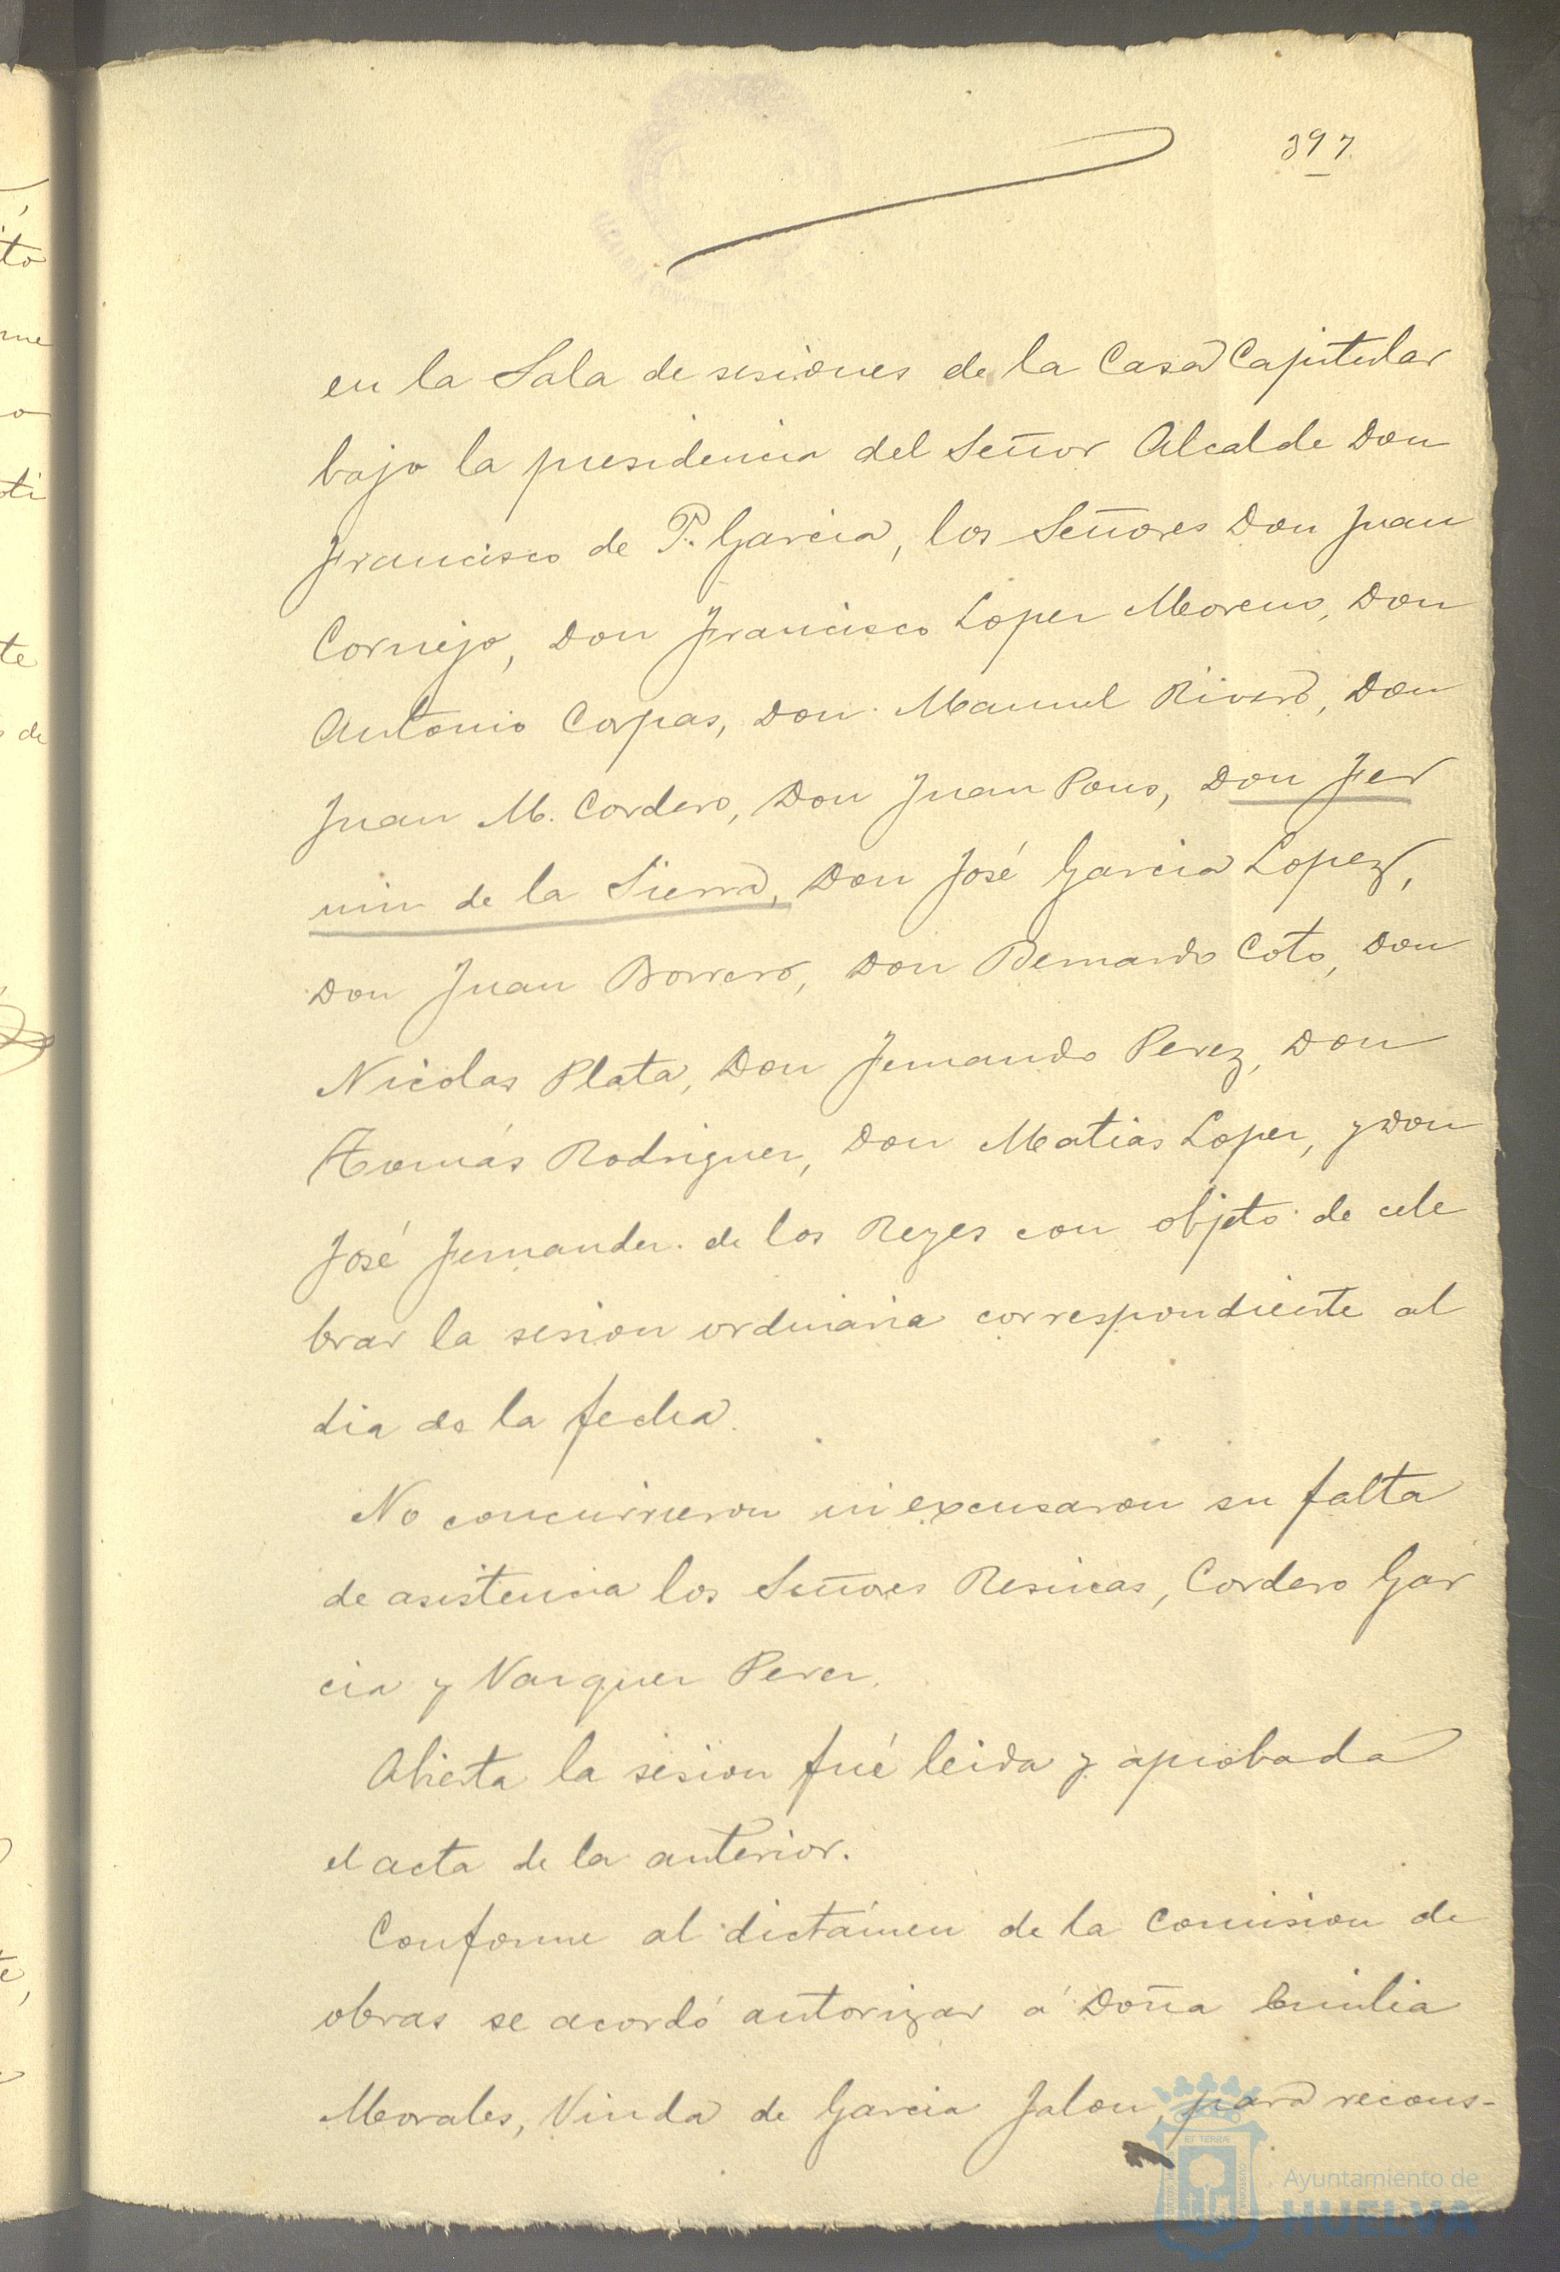 397
en la Sala de sesiones de la Casa Capitular
bajo la presidencia del Señor Alcalde Don
Francisco de P. Garcia, los Señores Don Juan
Cornejo, Don Francisco Lopez Moreno, Don
Antonio Corpas, Don Manuel Rivero, Don
Juan M. Cordero, Don Juan Pons, Don Fer
min de la Sierra, Don José Garcia Lopez,
Don Juan Borrero, Don Bernardo Coto, Don
Nicolas Plata, Don Fernando Perez, Don
Tomás Rodriguez, Don Matias Lopez, y Don
José Fernandez de los Reyes con objeto de cele
brar la sesion ordinaria correspondiente al
dia de la fecha.
No concurrieron ni excusaron su falta
de asistencia los Señores Resinas, Cordero Gar
cia y Vazquez Perez.
Abierta la sesion fué leida y aprobada
el acta de la anterior.
Conforme al dictámen de la Comision de
obras se acordó autorizar á Doña Emilia
Morales, Viuda de Garcia Jalon, para recons-
ET TERRÆ
Ayuntamiento de
HUELVA